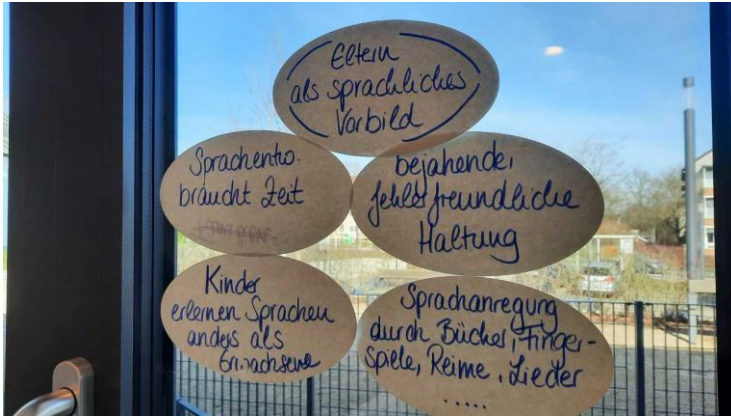 Eltern
als sprachliches
Vorbild
Sprachentw.
braucht Zeit
bejahende,
fehlerfreundliche
Haltung
Kinder
erlernen Sprachen
anders als
Erwachsene
Sprachanregung
durch Bücher, Finger-
spiele, Reime, Lieder
.....